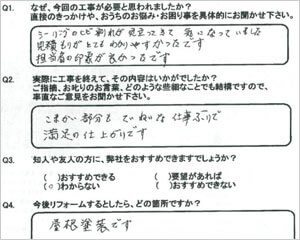 Q1. なぜ、今回の工事が必要と思われましたか?
直接のきっかけや、おうちのお悩み・お困り事を具体的にお聞かせ下さい。
シーリングのヒビ割れが目立ってきて 気になっていました
見積もりがとてもわかりやすかったです
担当者の印象が良かったです
Q2. 実際に工事を終えて、その内容はいかがでしたか?
ご指摘、お叱りのお言葉、どのような些細なことでも結構ですので、
率直なご意見をお聞かせ下さい。
こまかい部分も ていねいな仕事ぶりで
満足の仕上がりです
Q3. 知人や友人の方に、弊社をおすすめできますでしょうか?
( )おすすめできる ( )要望があれば
(○)わからない ( )おすすめできない
Q4. 今後リフォームするとしたら、どの箇所ですか?
屋根塗装です